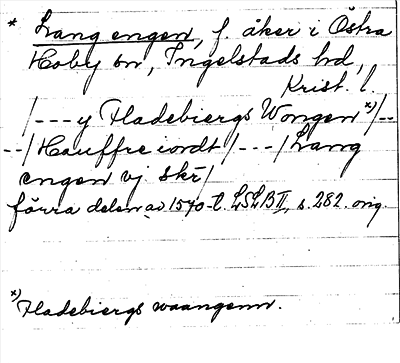 * Lang engen, f. åker i Östra
Hoby sn, Ingelstads hd,
Krist. l.
/---y Fladebiergs Wongen x)/--
--/Hauffre iordt/---/Lang
engen vj skr/
förra delen av 1570-t. LSLB II, s. 282. orig.
x) Fladebiergs waangenn.